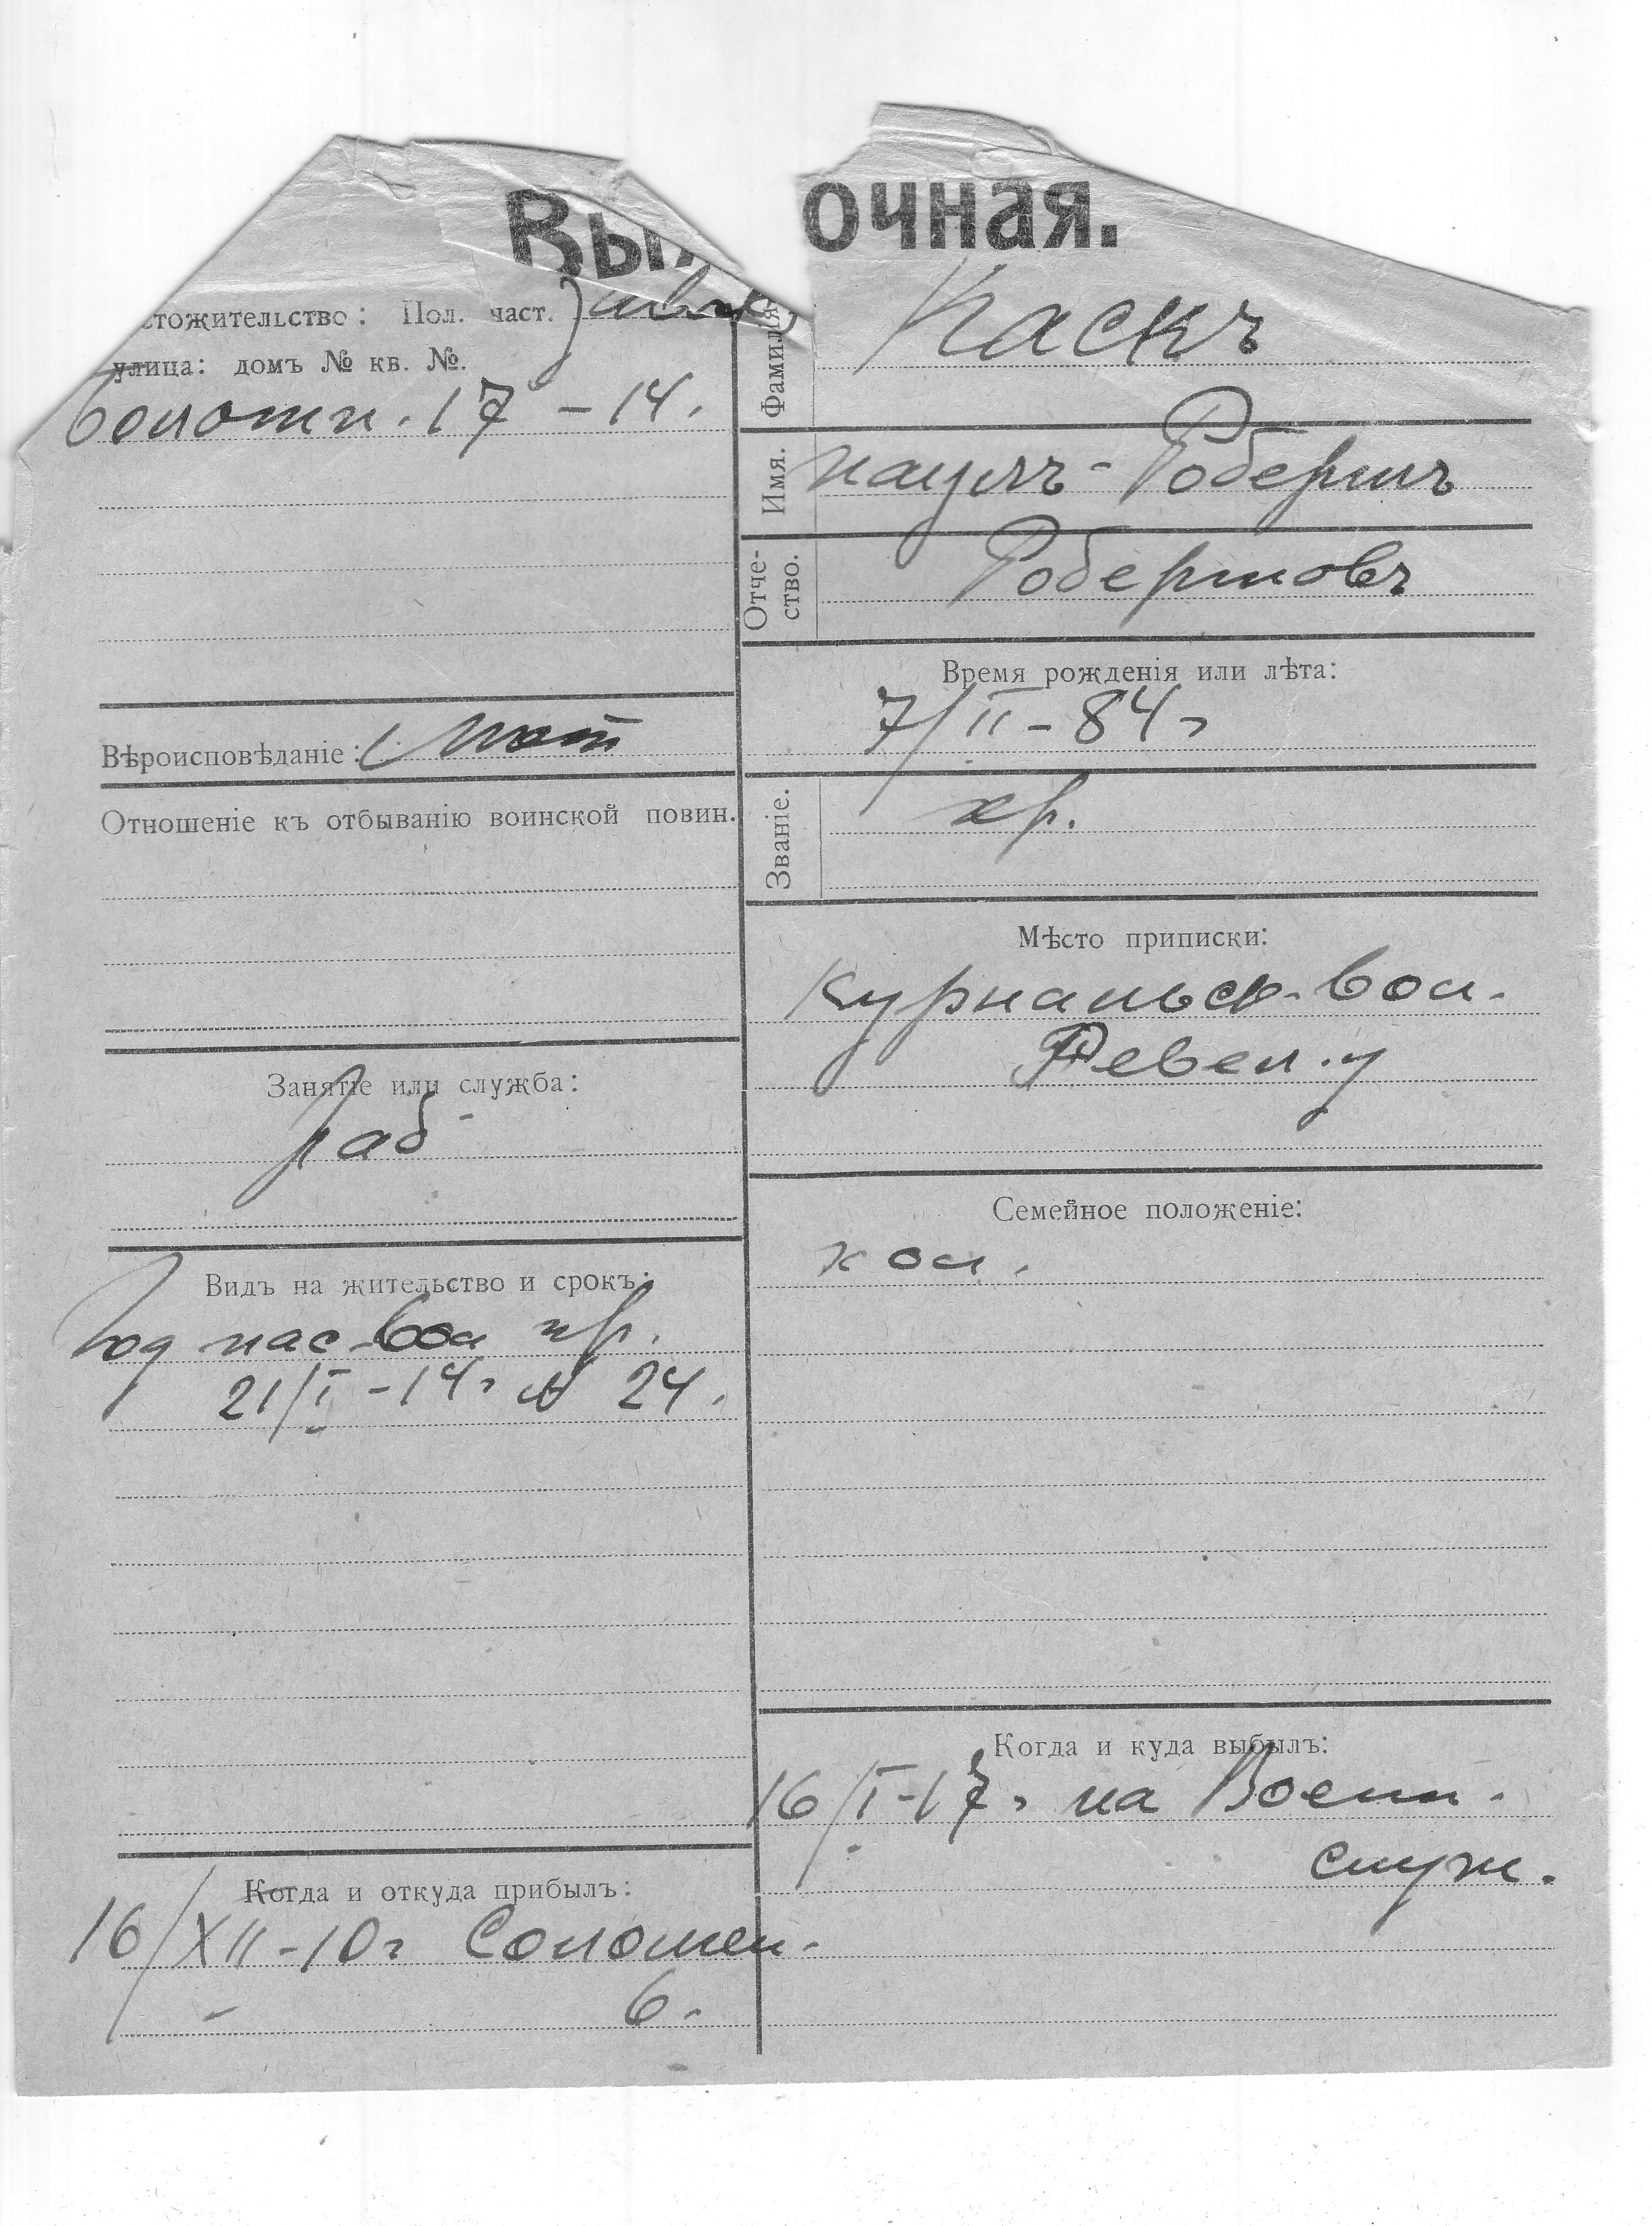 Вы
очная.
стожительство: Пол. част.
улица: домъ № кв. №.
Болотн. 17 – 14.
Вѣроисповѣданіе:
Отношеніе къ отбыванію воинской повин.
Занятіе или служба:
Раб
Видъ на жительство и срокъ:
Год пас. вол пр.
21/I – 14 г № 24.
Когда и откуда прибылъ:
16/XII – 10 г Соломен.
6.
Фамилія
Каскъ
Имя.
Пауль - Робертъ
Отче-
ство.
Робертовъ
Время рожденія или лѣта:
7/II – 84 г
Званіе.
кр.
Мѣсто приписки:
Курнальск. вол.
Ревел. у
Семейное положеніе:
хол.
Когда и куда выбылъ:
16/I – 17 г на Воен.
служ.